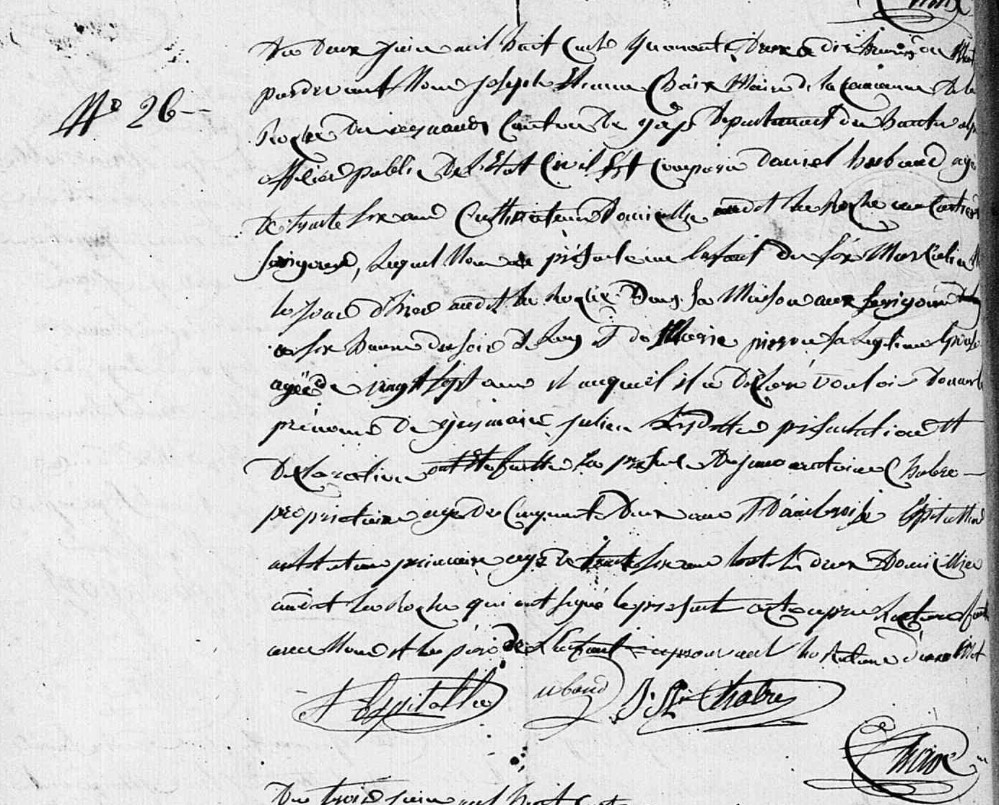 N° 26
Du deux juin mil huit cents quarante deux à dix heures du matin
pardevant Nous joseph Etienne Chaix Maire de la Commune de la
Roche des arnauds Canton de gap Departement des hautes alpes
officier public De l'Etat Civil Est Comparu Daniel hubaud agé
De trente six ans Cultivateur Domicillié audit La Roche au cartier
, Lequel Nous a présenté un Enfant du sexe Masculin né
le jour d'hier audit la Roche Dans sa Maison aux
a six heures du soir De luy Et de Marie sa legitime Epouse
agée de vingt sept ans Et auquel il a Déclaré vouloir Donner les
prénoms de germain julien Lesdittes présentation Et
Declaration ont Eté faittes En présence De jean antoine Chabre
propriétaire agé de Cinquante Deux ans Et D'ambroise Espitallier
instituteur primaire agé de trente six ans tous les deux Domicilliés
audit La Roche qui ont signé le présent acte après lecture faite
avec Nous Et Le père de L'Enfant approuvant la rature d'un Mot
Espitallier ubaud Chabre
Chaix
Du trois juin mil huit Cents